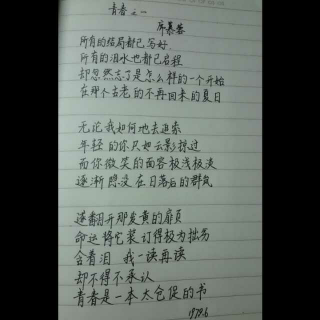 青春之一
席慕蓉
所有的结局都已写好
所有的泪水也都已启程
却忽然忘了是怎么样的一个开始
在那个古老的不再回来的夏日
无论我如何地去追索
年轻的你只如云影掠过
而你微笑的面容极浅极淡
逐渐隐没在日落后的群岚
遂翻开那发黄的扉页
命运将它装订得极为拙劣
含着泪 我一读再读
却不得不承认
青春是一本太仓促的书
1979.6